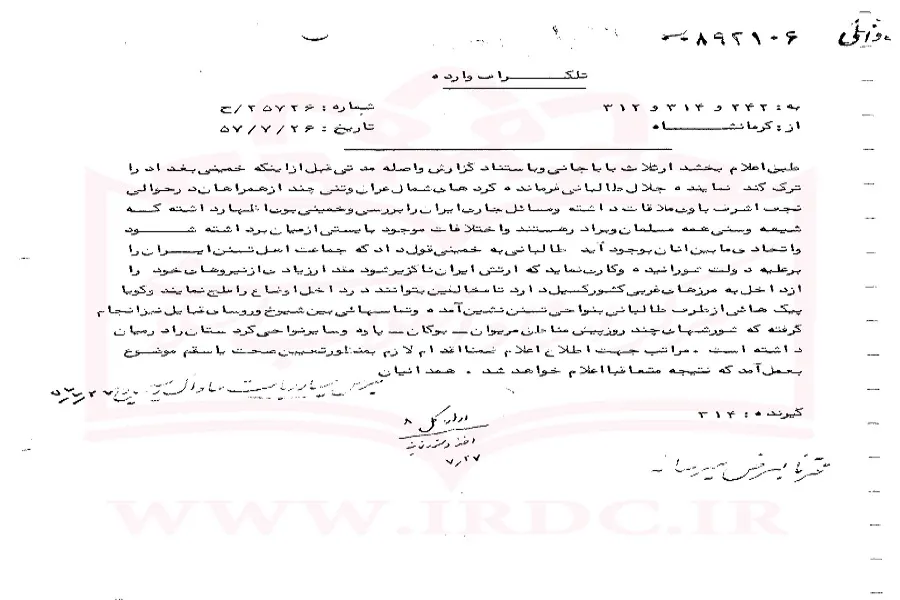 ۰۸۹۲۱۰۶
تلگراف وارده
به: ۲۴۲ و ۳۱۴ و ۳۱۲ شماره: ۲۵۷۲۶/ح
از: کرمانشاه تاریخ: ۵۷/۷/۲۶
طبق اعلام بخشد ارثلاث باباجانی وباستناد گزارش واصله مد تی قبل ازاینکه خمینی بغد اد را
ترک کند نماینده جلال طالبانی فرمانده کرد های شمال عراق وتنی چند ازهمراهان د رحوالی
نجف اشرف باوی ملاقات د اشته ومسائل جاری ایران را بررسی وخمینی بوی اظهارد اشته که
شیعه وسنی همه مسلمان وبراد رهستند واختلافات موجود بایستی ازمیان برد اشته شود
واتحاد ی مابین آنان بوجود آید طالبانی به خمینی قول داد که جماعت اهل تسنن ایران را
برعلیه د ولت شورانیده وکاری نماید که ارتش ایران ناگزیرشود مقد ارزیاد ی ازنیروهای خود را
ازد اخل به مرزهای غربی کشورگسیل د ارد تامخالفین بتوانند د رد اخل اوضاع را ملتهب نمایند وگویا
پیک هائی ازطرف طالبانی بنواحی تسنن نشین آمده وتماسهائی بین شیوخ وروسای قبایل نیزانجام
گرفته که شورشهای چند روزپیش مناطق مریوان - بوکان - پاوه وسایرنواحی کرد ستان راد رمیان
د اشته است. مراتب جهت اطلاع اعلام ضمنا اقد ام لازم بمنظورتعیین صحت یاسقم موضوع
بعمل آمد که نتیجه متعاقبا اعلام خواهد شد. همد انیان
گیرنده: ۳۱۴
اداره کل ۸
۷/۲۷
WWW.IRDC.IR